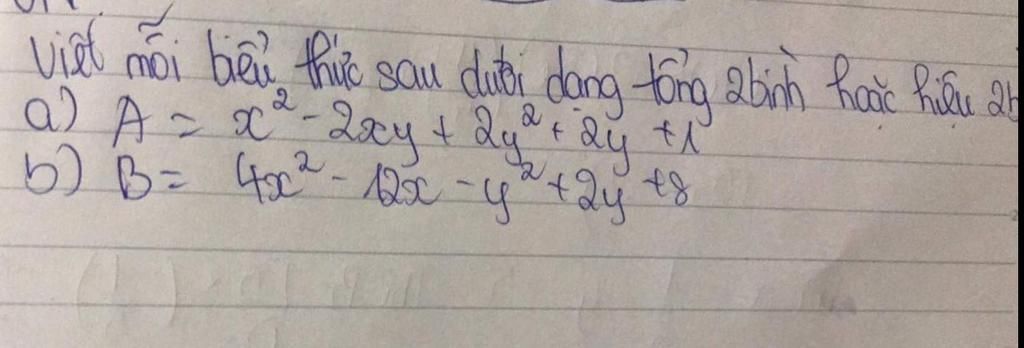 Viết mỗi biểu thức sau dưới dạng tổng 2 bình hoặc hiệu 2b
a) A = x² - 2xy + 2y² + 2y + 1
b) B = 4x² - 12x - y² + 2y + 8